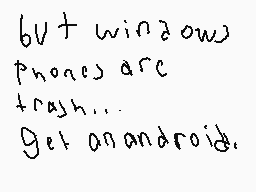 but windows
phones are
trash...
get an android.